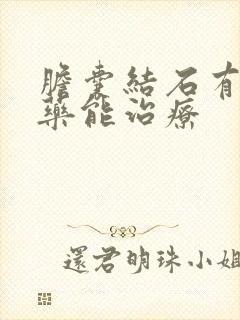 膽囊結石有
藥能治療
還君明珠小姐